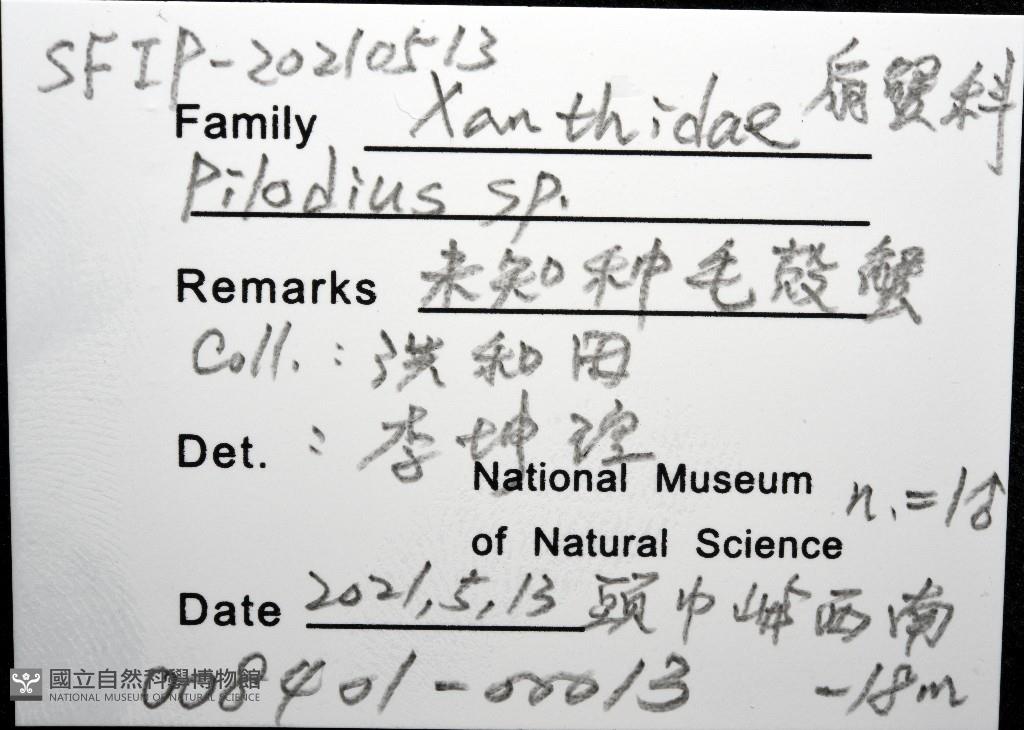 SFIP-20210513
Family Xanthidae 扇蟹科
Pilodius sp.
Remarks 未知种毛殼蟹
Coll.：洪和田
Det.：李坤瑄
National Museum n.=1♂
of Natural Science
Date 2021,5,13 頭巾嶼西南
008401-00013 -18m
國立自然科學博物館
NATIONAL MUSEUM OF NATURAL SCIENCE